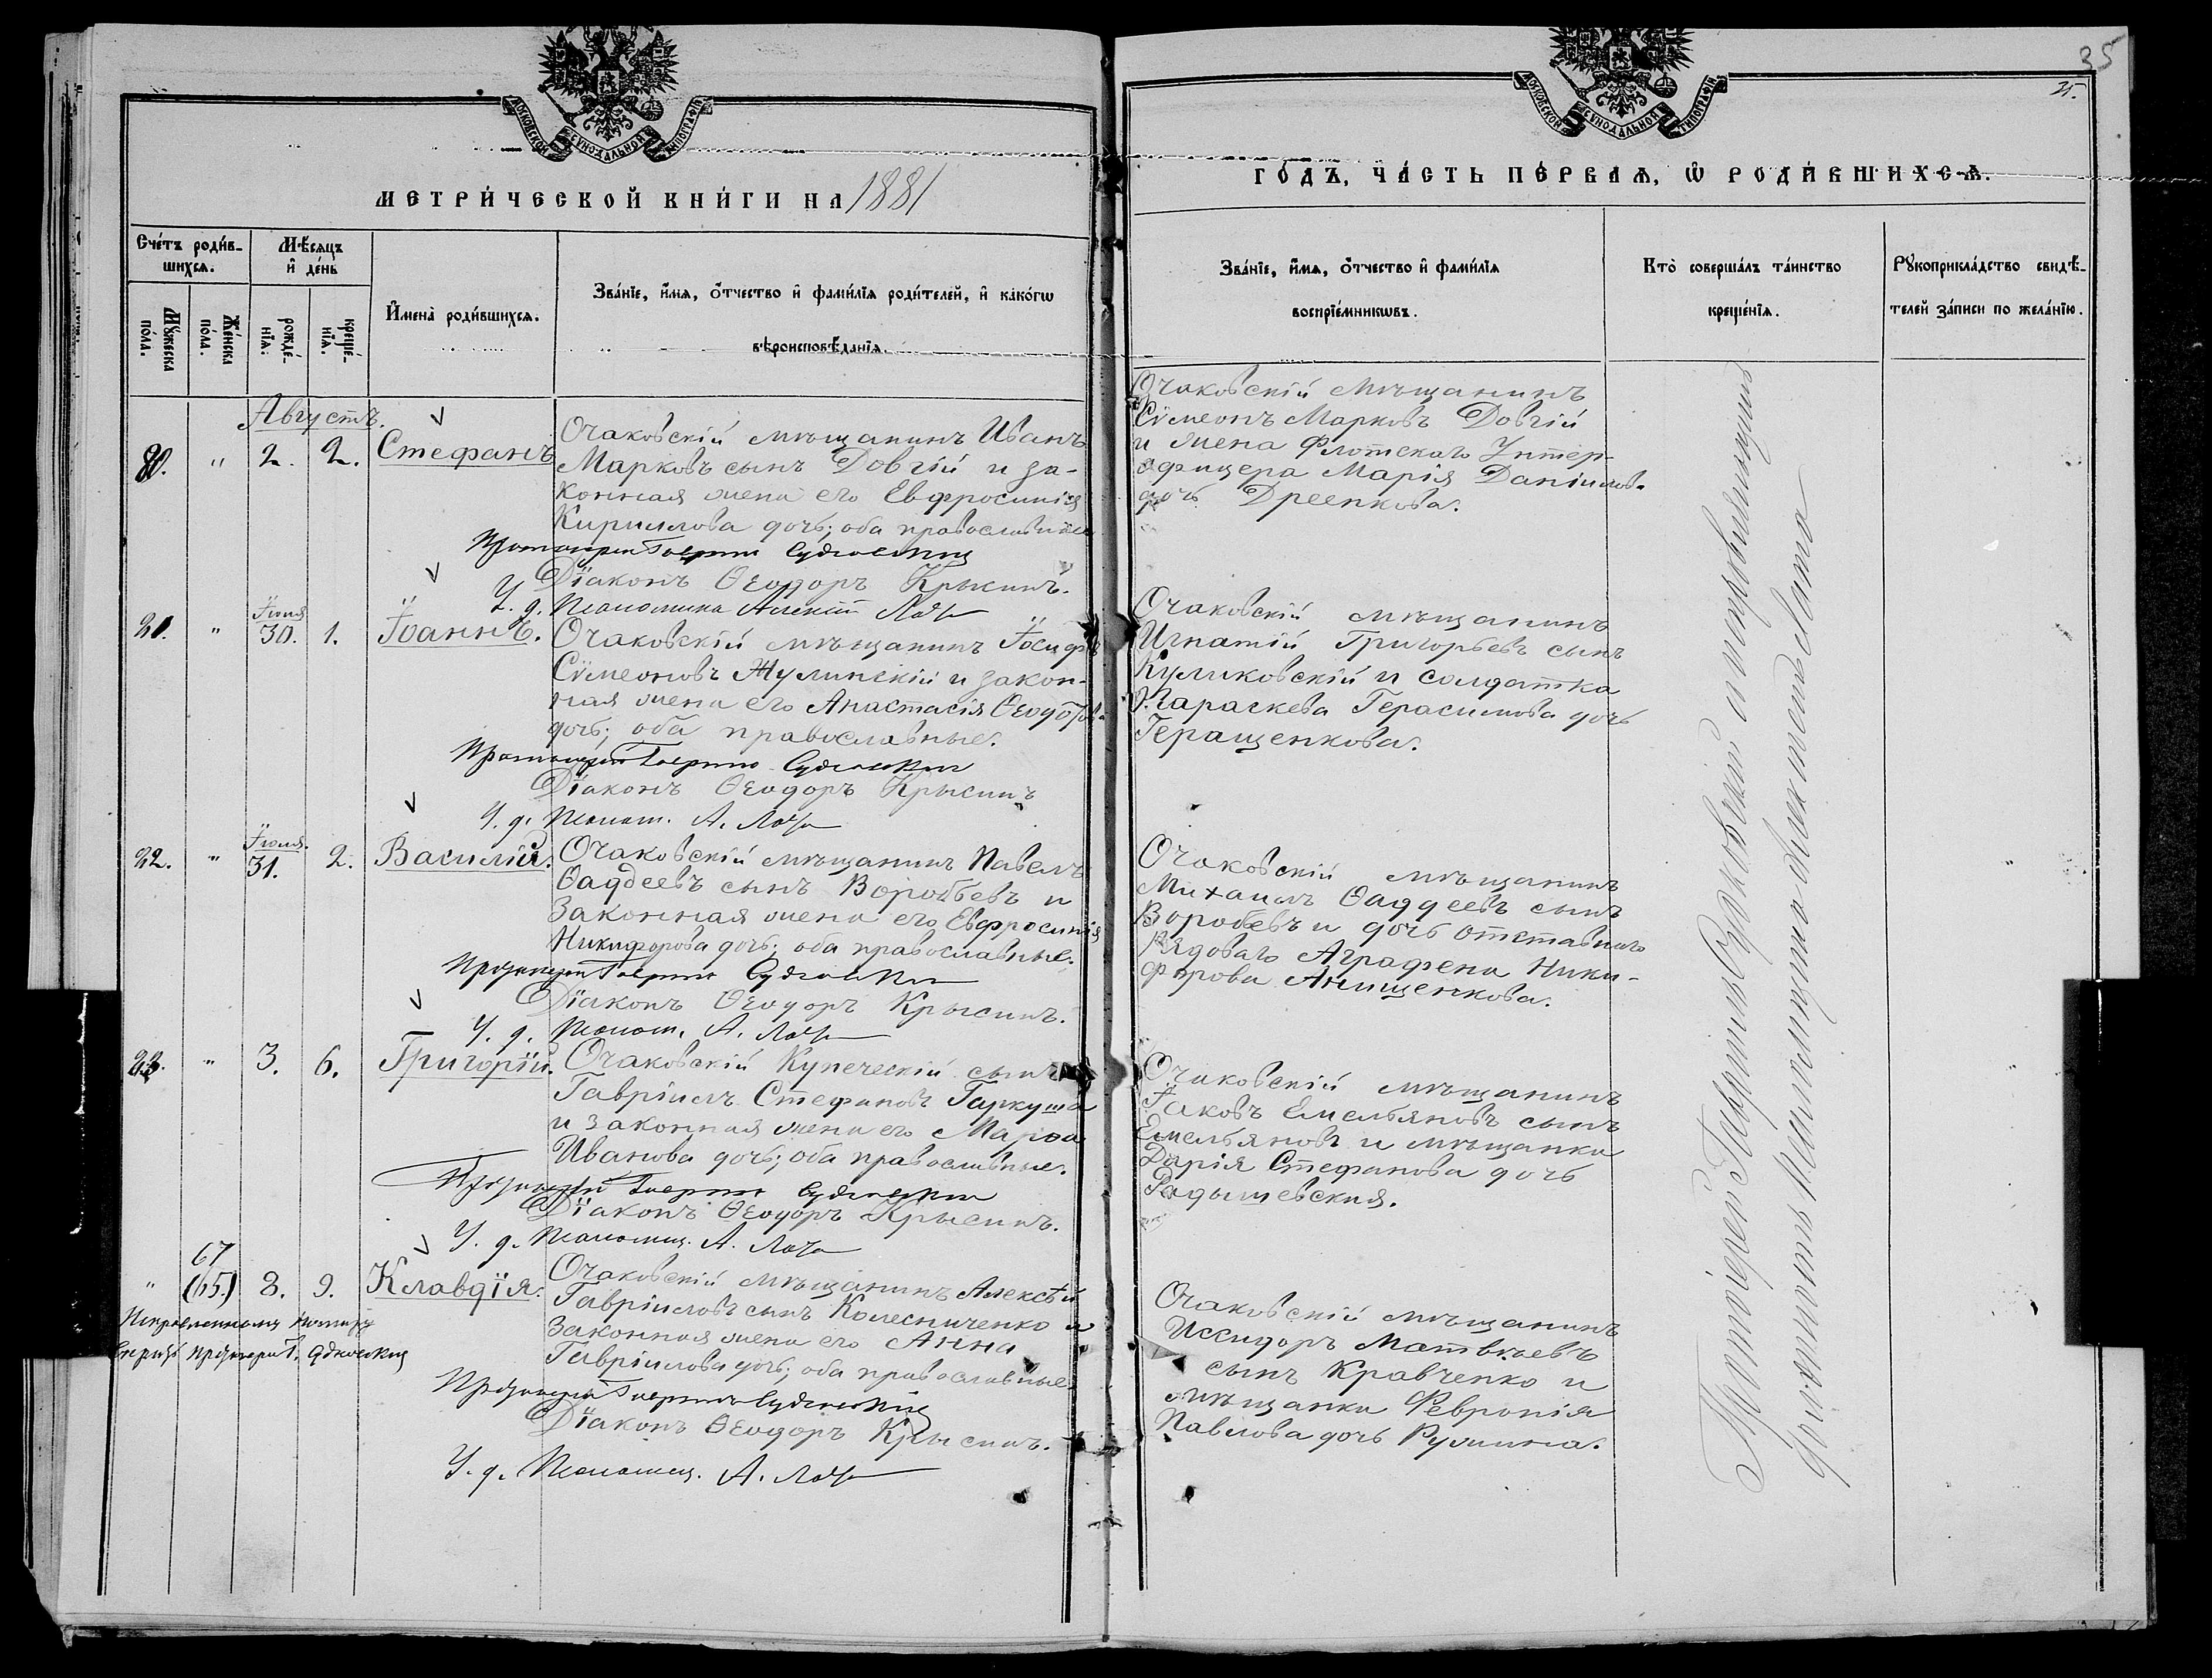 35
25.
МОСКОВСКОЙ СѴНОДАЛЬНОЙ ТИПОГРАФІИ
МОСКОВСКОЙ СѴНОДАЛЬНОЙ ТИПОГРАФІИ
МЕТРИ́ЧЕСКОЙ КНИ́ГИ НА 1881
ГО́ДЪ, ЧА́СТЬ ПЕ́РВАѦ, Ѡ РОДИ́ВШИХСѦ.
Сче́тъ роди́в-
шихсѧ.
Мꙋ́жеска
по́ла.
Же́нска
по́ла.
Мѣ́сѧцъ
и҆ де́нь
рожде́-
нїѧ.
креще́-
нїѧ.
И҆мена̀ роди́вшихсѧ.
Зва́нїе, и҆́мѧ, ѻ҆́тчество и҆ фами́лїѧ роди́телей, и҆ како́гѡ
вѣроисповѣ́данїѧ.
Зва́нїе, и҆́мѧ, ѻ҆́тчество и҆ фами́лїѧ
воспрїе́мникѡвъ.
Кто̀ соверша́лъ та́инство
креще́нїѧ.
Рꙋкоприкла́дство свидѣ́-
телей за́писи по жела́нїю.
Августъ.
20. " 2. 2. Стефанъ
Очаковскій мѣщанинъ Иванъ
Марковъ сынъ Довгій и за-
конная жена его Евфросинія
Кириллова дочь; оба православные
Протоіерей Гавріилъ Судковскій
Діаконъ Ѳеодоръ Крысинъ.
И. д. Псаломщика Алексій
Очаковскій мѣщанинъ
Сѵмеонъ Марковъ Довгій
и жена Флотскаго Унтер-
офицера Марія Даніилов.
дочь Дреенкова.
21. " Іюля 30. 1. Іоаннъ.
Очаковскій мѣщанинъ Іосифъ
Сѵмеоновъ Жулинскій и закон-
ная жена его Анастасія Ѳеодоров.
дочь; оба православные.
Протоіерей Гавріилъ Судковскій
Діаконъ Ѳеодоръ Крысинъ
И. д. Псалом. А.
Очаковскій мѣщанинъ
Игнатій Григорьевъ сынъ
Куликовскій и солдатка
Параскева Герасимова дочь
Геращенкова.
22. " Іюля. 31. 2. Василій.
Очаковскій мѣщанинъ Павелъ
Ѳаддеевъ сынъ Воробьевъ и
законная жена его Евфросинія
Никифорова дочь; оба православные.
Протоіерей Гавріилъ Судковскій
Діаконъ Ѳеодоръ Крысинъ.
И. д. Псалом. А.
Очаковскій мѣщанинъ
Михаилъ Ѳаддеевъ сынъ
Воробьевъ и дочь отставнаго
рядоваго Аграфена Ники-
форова Анищенкова.
23. " 3. 6. Григорій.
Очаковскій Купеческій сынъ
Гавріилъ Стефановъ Гаркуша
и законная жена его Марѳа
Иванова дочь; оба православные.
Протоіерей Гавріилъ Судковскій
Діаконъ Ѳеодоръ Крысинъ.
И. д. Псаломщ. А.
Очаковскій мѣщанинъ
Іаковъ Емельяновъ сынъ
Емельяновъ и мѣщанка
Дарія Стефанова дочь
Радышевская.
67
" (65.) 8. 9. Клавдія.
Исправленному
вѣрить Протоіерей Г. Судковскій
Очаковскій мѣщанинъ Алексѣй
Гавріиловъ сынъ Колесниченко и
законная жена его Анна
Гавріилова дочь; оба православные.
Протоіерей Гавріилъ Судковскій
Діаконъ Ѳеодоръ Крысинъ.
И. д. Псаломщ. А.
Очаковскій мѣщанинъ
Исидоръ Матвѣевъ
сынъ Кравченко и
мѣщанка Февронія
Павлова дочь Румина.
Протоіерей Гавріилъ Судковскій